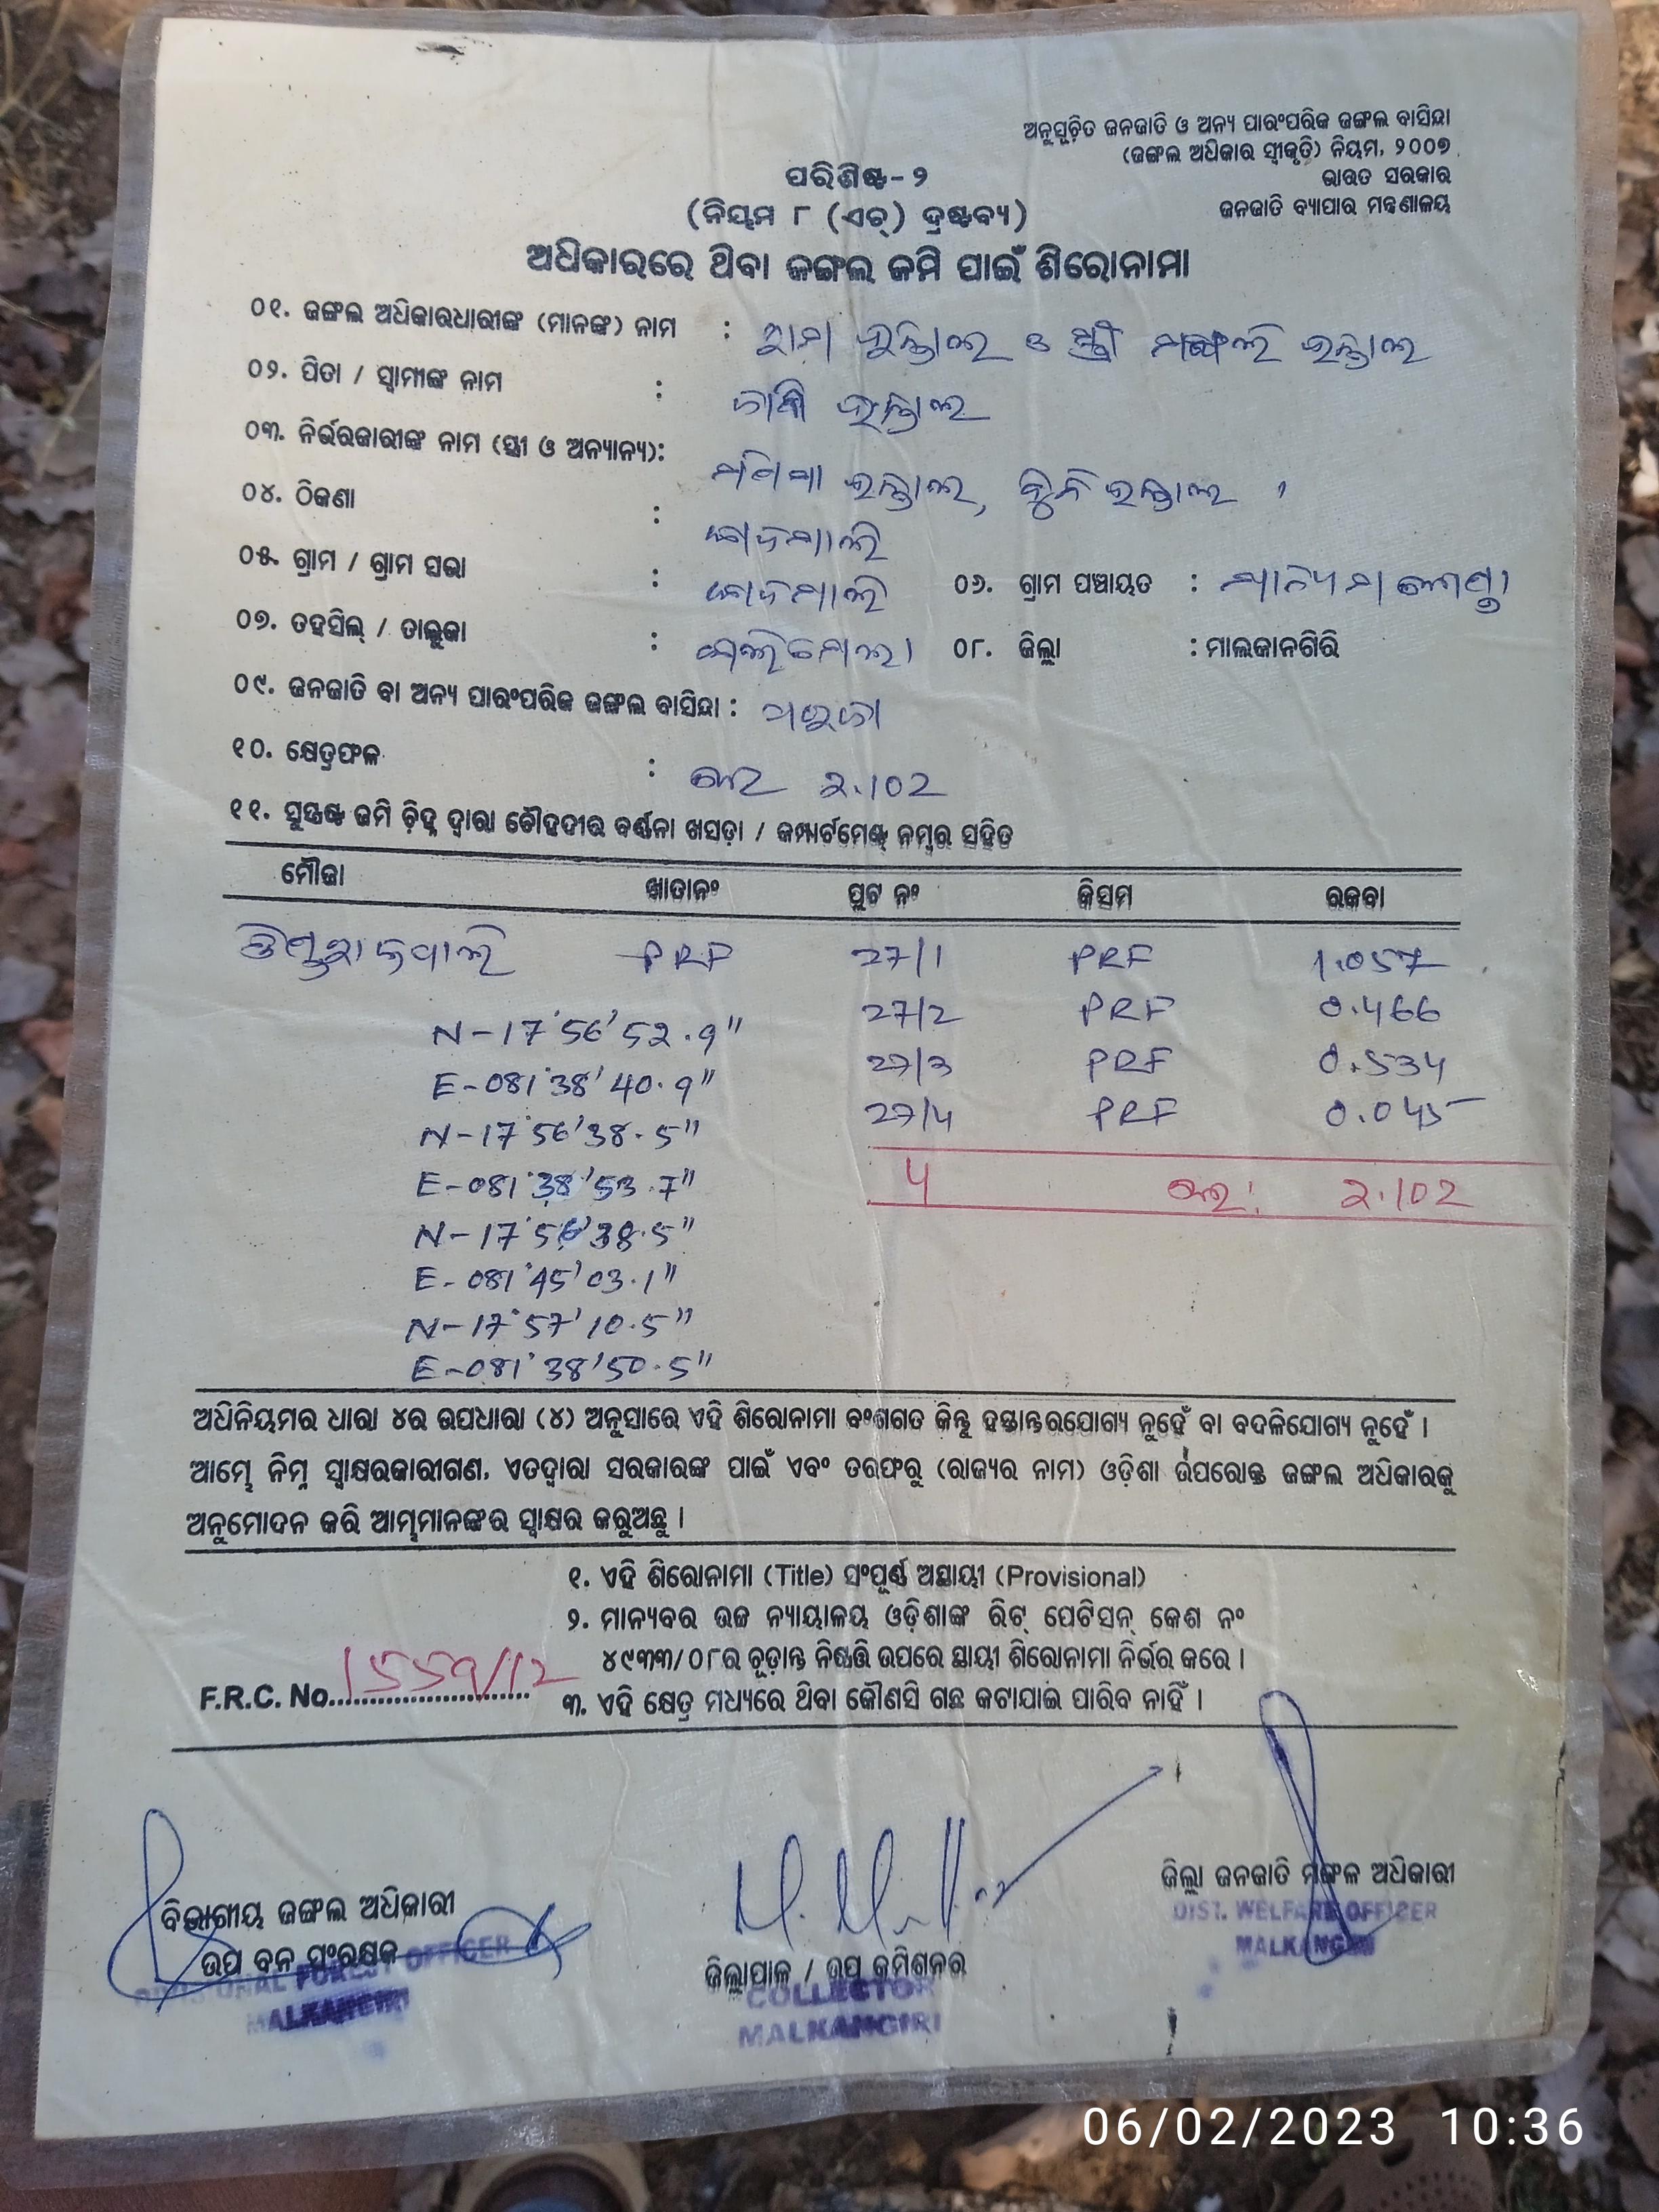 ଅନୁସୂଚିତ ଜନଜାତି ଓ ଅନ୍ୟ ପାରଂପରିକ ଜଙ୍ଗଲ ବାସିନ୍ଦା
(ଜଙ୍ଗଲ ଅଧିକାର ସ୍ୱୀକୃତି) ନିୟମ, ୨୦୦୭
ଭାରତ ସରକାର
ଜନଜାତି ବ୍ୟାପାର ମନ୍ତ୍ରଣାଳୟ
ପରିଶିଷ୍ଟ-୨
(ନିୟମ ୮ (ଏଚ୍) ଦ୍ରଷ୍ଟବ୍ୟ)
ଅଧିକାରରେ ଥିବା ଜଙ୍ଗଲ ଜମି ପାଇଁ ଶିରୋନାମା
୦୧. ଜଙ୍ଗଲ ଅଧିକାରଧାରୀଙ୍କ (ମାନଙ୍କ) ନାମ :
୦୨. ପିତା / ସ୍ୱାମୀଙ୍କ ନାମ :
୦୩. ନିର୍ଭରକାରୀଙ୍କ ନାମ (ସ୍ତ୍ରୀ ଓ ଅନ୍ୟାନ୍ୟ):
୦୪. ଠିକଣା :
୦୫. ଗ୍ରାମ / ଗ୍ରାମ ସଭା : ୦୬. ଗ୍ରାମ ପଞ୍ଚାୟତ :
୦୭. ତହସିଲ୍ / ତାଲୁକା : ୦୮. ଜିଲ୍ଲା : ମାଲକାନଗିରି
୦୯. ଜନଜାତି ବା ଅନ୍ୟ ପାରଂପରିକ ଜଙ୍ଗଲ ବାସିନ୍ଦା :
୧୦. କ୍ଷେତ୍ରଫଳ : 2.102
୧୧. ସୁସ୍ପଷ୍ଟ ଜମି ଚିହ୍ନ ଦ୍ୱାରା ଚୌହଦୀର ବର୍ଣ୍ଣନା ଖସଡ଼ା / କମ୍ପାର୍ଟମେଣ୍ଟ ନମ୍ବର ସହିତ
ମୌଜା ଖାତାନଂ ପ୍ଲଟ ନଂ କିସମ ରକବା
PRF 27/1 PRF 1.057
N-17°56'52.9" 27/2 PRF 0.466
E-081°38'40.9" 27/3 PRF 0.534
N-17°56'38.5" 27/4 PRF 0.045
E-081°38'53.7" 4 2.102
N-17°56'38.5"
E-081°45'03.1"
N-17°57'10.5"
E-081°38'50.5"
ଅଧିନିୟମର ଧାରା ୪ର ଉପଧାରା (୪) ଅନୁସାରେ ଏହି ଶିରୋନାମା ବଂଶଗତ କିନ୍ତୁ ହସ୍ତାନ୍ତରଯୋଗ୍ୟ ନୁହେଁ ବା ବଦଳିଯୋଗ୍ୟ ନୁହେଁ ।
ଆମ୍ଭେ ନିମ୍ନ ସ୍ୱାକ୍ଷରକାରୀଗଣ, ଏତଦ୍ୱାରା ସରକାରଙ୍କ ପାଇଁ ଏବଂ ତରଫରୁ (ରାଜ୍ୟର ନାମ) ଓଡ଼ିଶା ଉପରୋକ୍ତ ଜଙ୍ଗଲ ଅଧିକାରକୁ
ଅନୁମୋଦନ କରି ଆମ୍ଭମାନଙ୍କର ସ୍ୱାକ୍ଷର କରୁଅଛୁ ।
୧. ଏହି ଶିରୋନାମା (Title) ସଂପୂର୍ଣ୍ଣ ଅସ୍ଥାୟୀ (Provisional)
୨. ମାନ୍ୟବର ଉଚ୍ଚ ନ୍ୟାୟାଳୟ ଓଡ଼ିଶାଙ୍କ ରିଟ୍ ପେଟିସନ୍ କେଶ ନଂ
୪୯୩୩/୦୮ର ଚୂଡ଼ାନ୍ତ ନିଷ୍ପତ୍ତି ଉପରେ ସ୍ଥାୟୀ ଶିରୋନାମା ନିର୍ଭର କରେ ।
F.R.C. No. 1559/12
୩. ଏହି କ୍ଷେତ୍ର ମଧ୍ୟରେ ଥିବା କୌଣସି ଗଛ କଟାଯାଇ ପାରିବ ନାହିଁ ।
ବିଭାଗୀୟ ଜଙ୍ଗଲ ଅଧିକାରୀ
ଉପ ବନ ସଂରକ୍ଷକ
DIVISIONAL FOREST OFFICER
MALKANGIRI
ଜିଲ୍ଲାପାଳ / ଉପ କମିଶନର
COLLECTOR
MALKANGIRI
ଜିଲ୍ଲା ଜନଜାତି ମଙ୍ଗଳ ଅଧିକାରୀ
DIST. WELFARE OFFICER
MALKANGIRI
06/02/2023 10:36